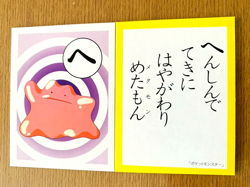 へ
へんしんで
てきに
はやがわり
メタモン
めたもん
「ポケットモンスター」